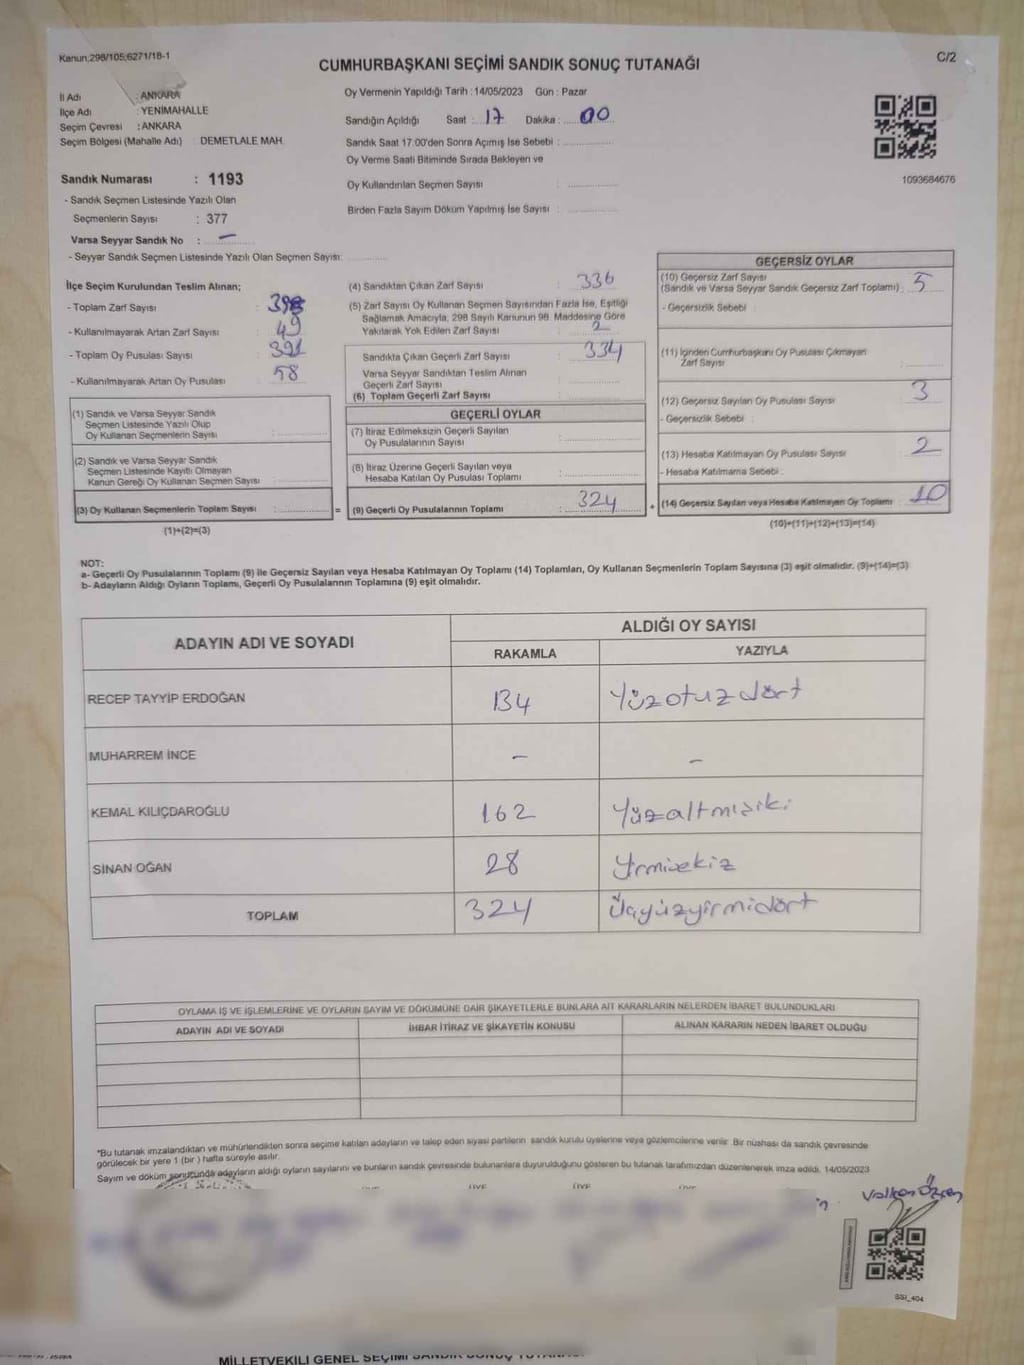 Kanun;298/105;6271/18-1
C/2
CUMHURBAŞKANI SEÇİMİ SANDIK SONUÇ TUTANAĞI
İl Adı : ANKARA
İlçe Adı : YENİMAHALLE
Seçim Çevresi : ANKARA
Seçim Bölgesi (Mahalle Adı) DEMETLALE MAH.
Oy Vermenin Yapıldığı Tarih :14/05/2023 Gün : Pazar
Sandığın Açıldığı Saat : 17 Dakika : 00
Sandık Saat 17.00'den Sonra Açımış İse Sebebi :
Oy Verme Saati Bitiminde Sırada Bekleyen ve
Oy Kullandırılan Seçmen Sayısı :
Birden Fazla Sayım Döküm Yapılmış İse Sayısı :
1093684676
Sandık Numarası : 1193
- Sandık Seçmen Listesinde Yazılı Olan
Seçmenlerin Sayısı : 377
Varsa Seyyar Sandık No : —
- Seyyar Sandık Seçmen Listesinde Yazılı Olan Seçmen Sayısı:
İlçe Seçim Kurulundan Teslim Alınan;
- Toplam Zarf Sayısı :
- Kullanılmayarak Artan Zarf Sayısı : 49
- Toplam Oy Pusulası Sayısı : 391
- Kullanılmayarak Artan Oy Pusulası : 58
(1) Sandık ve Varsa Seyyar Sandık
Seçmen Listesinde Yazılı Olup
Oy Kullanan Seçmenlerin Sayısı :
(2) Sandık ve Varsa Seyyar Sandık
Seçmen Listesinde Kayıtlı Olmayan
Kanun Gereği Oy Kullanan Seçmen Sayısı :
(3) Oy Kullanan Seçmenlerin Toplam Sayısı : =
(1)+(2)=(3)
(4) Sandıktan Çıkan Zarf Sayısı : 336
(5) Zarf Sayısı Oy Kullanan Seçmen Sayısından Fazla İse, Eşitliği
Sağlamak Amacıyla, 298 Sayılı Kanunun 98. Maddesine Göre
Yakılarak Yok Edilen Zarf Sayısı : 2
Sandıkta Çıkan Geçerli Zarf Sayısı : 334
Varsa Seyyar Sandıktan Teslim Alınan
Geçerli Zarf Sayısı :
(6) Toplam Geçerli Zarf Sayısı :
GEÇERLİ OYLAR
(7) İtiraz Edilmeksizin Geçerli Sayılan
Oy Pusulalarının Sayısı :
(8) İtiraz Üzerine Geçerli Sayılan veya
Hesaba Katılan Oy Pusulası Toplamı :
(9) Geçerli Oy Pusulalarının Toplamı : 324 +
GEÇERSİZ OYLAR
(10) Geçersiz Zarf Sayısı
(Sandık ve Varsa Seyyar Sandık Geçersiz Zarf Toplamı) : 5
- Geçersizlik Sebebi :
(11) İçinden Cumhurbaşkanı Oy Pusulası Çıkmayan
Zarf Sayısı :
(12) Geçersiz Sayılan Oy Pusulası Sayısı : 3
- Geçersizlik Sebebi :
(13) Hesaba Katılmayan Oy Pusulası Sayısı : 2
- Hesaba Katılmama Sebebi :
(14) Geçersiz Sayılan veya Hesaba Katılmayan Oy Toplamı : 10
(10)+(11)+(12)+(13)=(14)
NOT:
a- Geçerli Oy Pusulalarının Toplamı (9) ile Geçersiz Sayılan veya Hesaba Katılmayan Oy Toplamı (14) Toplamları, Oy Kullanan Seçmenlerin Toplam Sayısına (3) eşit olmalıdır. (9)+(14)=(3)
b- Adayların Aldığı Oyların Toplamı, Geçerli Oy Pusulalarının Toplamına (9) eşit olmalıdır.
ADAYIN ADI VE SOYADI ALDIĞI OY SAYISI
RAKAMLA YAZIYLA
RECEP TAYYİP ERDOĞAN 134 Yüzotuzdört
MUHARREM İNCE – –
KEMAL KILIÇDAROĞLU 162 Yüzaltmışiki
SİNAN OĞAN 28 Yirmisekiz
TOPLAM 324 Üçyüzyirmidört
OYLAMA İŞ VE İŞLEMLERİNE VE OYLARIN SAYIM VE DÖKÜMÜNE DAİR ŞİKAYETLERLE BUNLARA AİT KARARLARIN NELERDEN İBARET BULUNDUKLARI
ADAYIN ADI VE SOYADI İHBAR İTİRAZ VE ŞİKAYETİN KONUSU ALINAN KARARIN NEDEN İBARET OLDUĞU
*Bu tutanak imzalandıktan ve mühürlendikten sonra seçime katılan adayların ve talep eden siyasi partilerin sandık kurulu üyelerine veya gözlemcilerine verilir. Bir nüshası da sandık çevresinde
görülecek bir yere 1 (bir) hafta süreyle asılır.
Sayım ve döküm sonucunda adayların aldığı oyların sayılarını ve bunların sandık çevresinde bulunanlara duyurulduğunu gösteren bu tutanak tarafımızdan düzenlenerek imza edildi. 14/05/2023
ÜYE ÜYE ÜYE
SSI_404
MİLLETVEKİLİ GENEL SEÇİMİ SANDIK SONUÇ TUTANAĞI